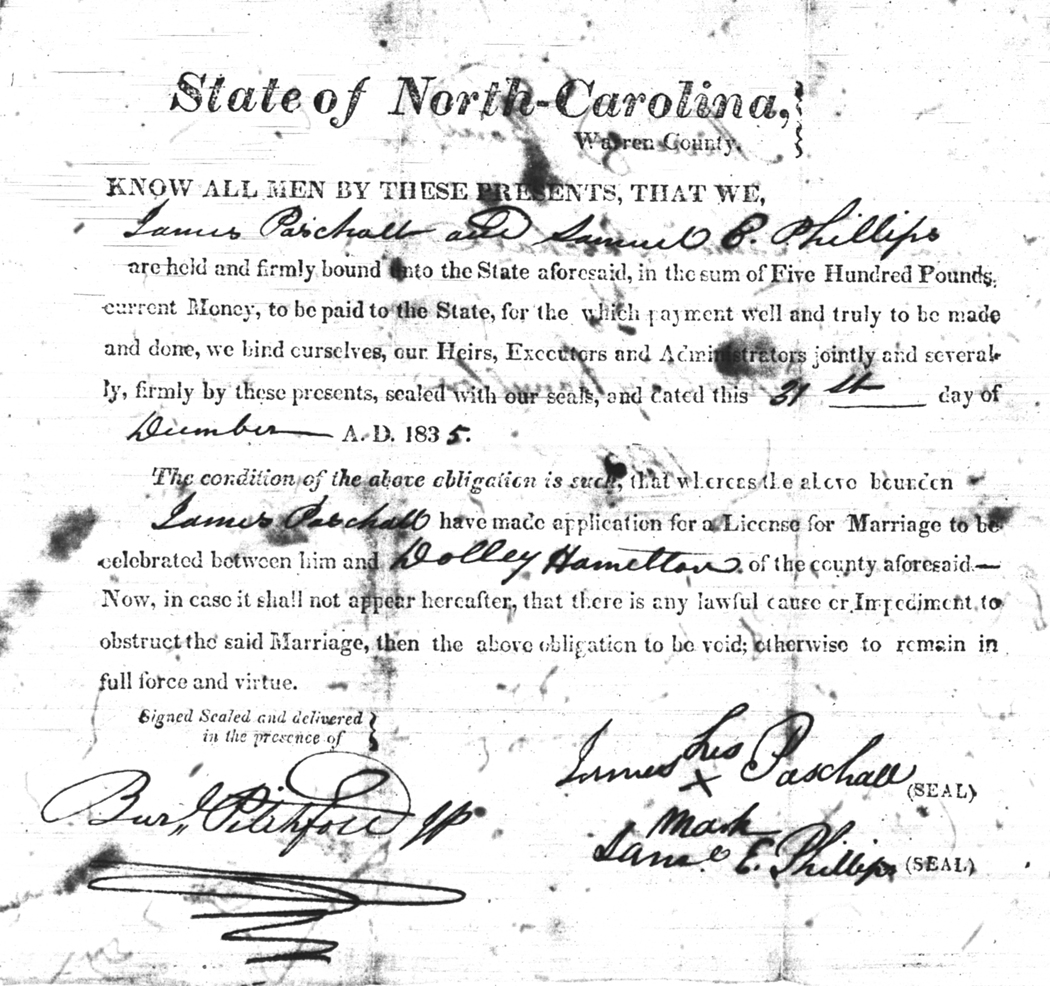 State of North-Carolina,
Warren County.
KNOW ALL MEN BY THESE PRESENTS, THAT WE,
James Paschall and Samuel E. Phillips
are held and firmly bound unto the State aforesaid, in the sum of Five Hundred Pounds,
current Money, to be paid to the State, for the which payment well and truly to be made
and done, we bind ourselves, our Heirs, Executors and Administrators jointly and several-
ly, firmly by these presents, sealed with our seals, and dated this 31st day of
December A. D. 1835.
The condition of the above obligation is such, that whereas the above bounden
James Paschall have made application for a License for Marriage to be
celebrated between him and Dolley Hamelton of the county aforesaid.—
Now, in case it shall not appear hereafter, that there is any lawful cause or Impediment to
obstruct the said Marriage, then the above obligation to be void; otherwise to remain in
full force and virtue.
Signed Sealed and delivered
in the presence of
James his X Paschall (SEAL)
mark
Burl Pitchford JP
Saml E. Phillips (SEAL)